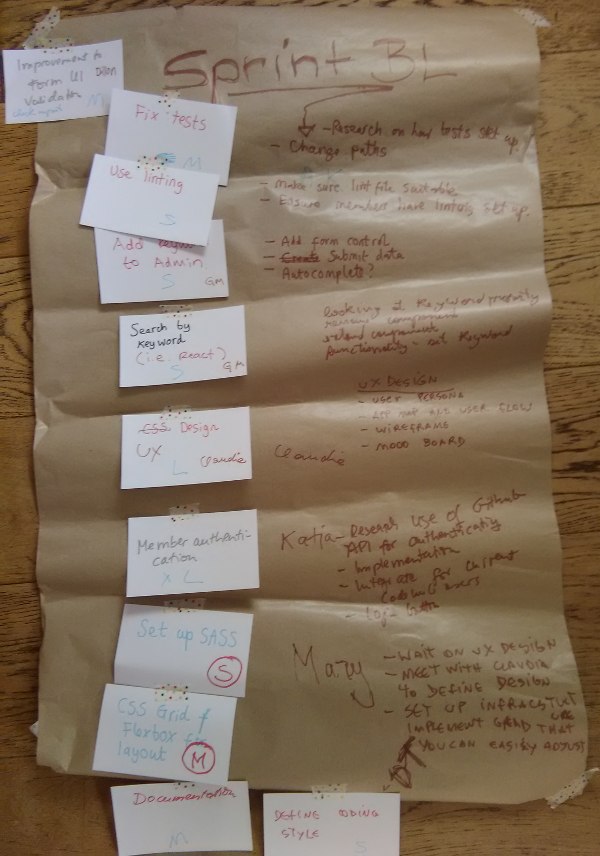 Sprint BL
Improvement to
Form UI Dillon
Validation
M
Fix tests
M
- Research on how tests set up.
- Change paths
Use linting
S
- Make sure lint file suitable
- Ensure members have linting set up.
Add
to Admin
S GM
- Add form control
- Create Submit data
- Autocomplete?
Search by
Keyword
(i.e. React)
S GM
looking at Keyword
component
component
functionality - Keyword
CSS Design
UX
L Claudia
Claudia
UX DESIGN
- USER PERSONA
- APP MAP USER FLOW
- WIREFRAME
- MOOD BOARD
Member authenti-
cation
X L
Katja - Research Use of Github
API for authenticating
- Implementation
- for current
users
- Login button
Set up SASS
S
Mary
- WAIT ON UX DESIGN
- MEET WITH CLAUDIA
TO DEFINE DESIGN
- SET UP INFRASTUCT
URE
IMPLEMENT THAT
YOU CAN EASILY ADJUST
CSS Grid &
Flexbox for
layout
M
Documentation
M
DEFINE CODING
STYLE
S